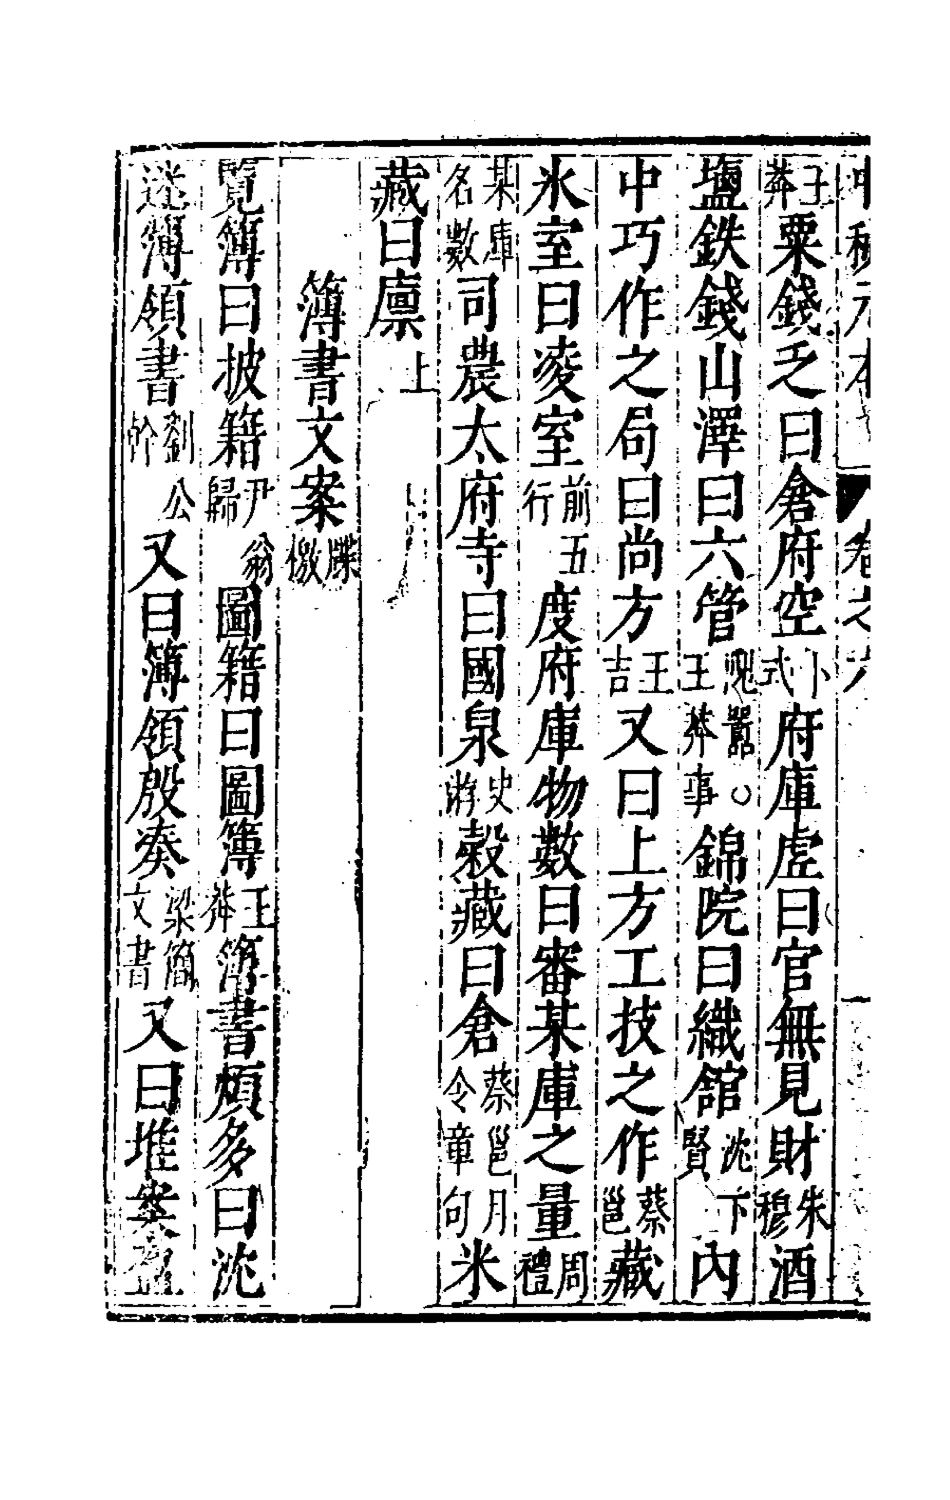 卷之六
王莽粟錢乏曰倉府空卜式府庫虛曰官無見財朱穆酒
鹽鉄錢山澤曰六管隗囂○王莽事錦院曰織舘沈下賢內
中巧作之局曰尚方王吉又曰上方工技之作蔡邕藏
氷室曰凌室前五行度府庫物數曰審某庫之量周禮
某庫名數司農太府寺曰國泉史游榖藏曰倉蔡邕月令章句米
藏曰廩上
簿書文案牒檄
覽簿曰披籍尹翁歸圖籍曰圖簿王莽簿書煩多曰沈
迷簿領書劉公幹又曰簿領殷凑梁簡文書又曰堆案盈